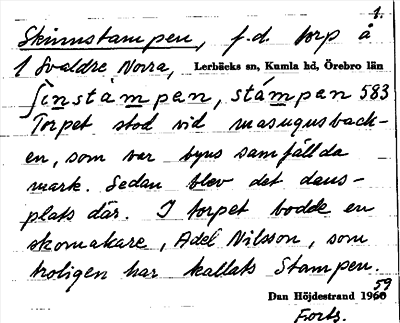 1.
Skinnstampen, f.d. torp å
1 Svaldre, Norra, Lerbäcks sn, Kumla hd, Örebro län
ʃìnstampən, stámpən 583
Torpet stod vid masugnsback-
en, som var byns samfällda
mark. Sedan blev det dans-
plats där. I torpet bodde en
skomakare, Adel Nilsson, som
troligen har kallats Stampen.
Dan Höjdestrand 1960 59
Forts.